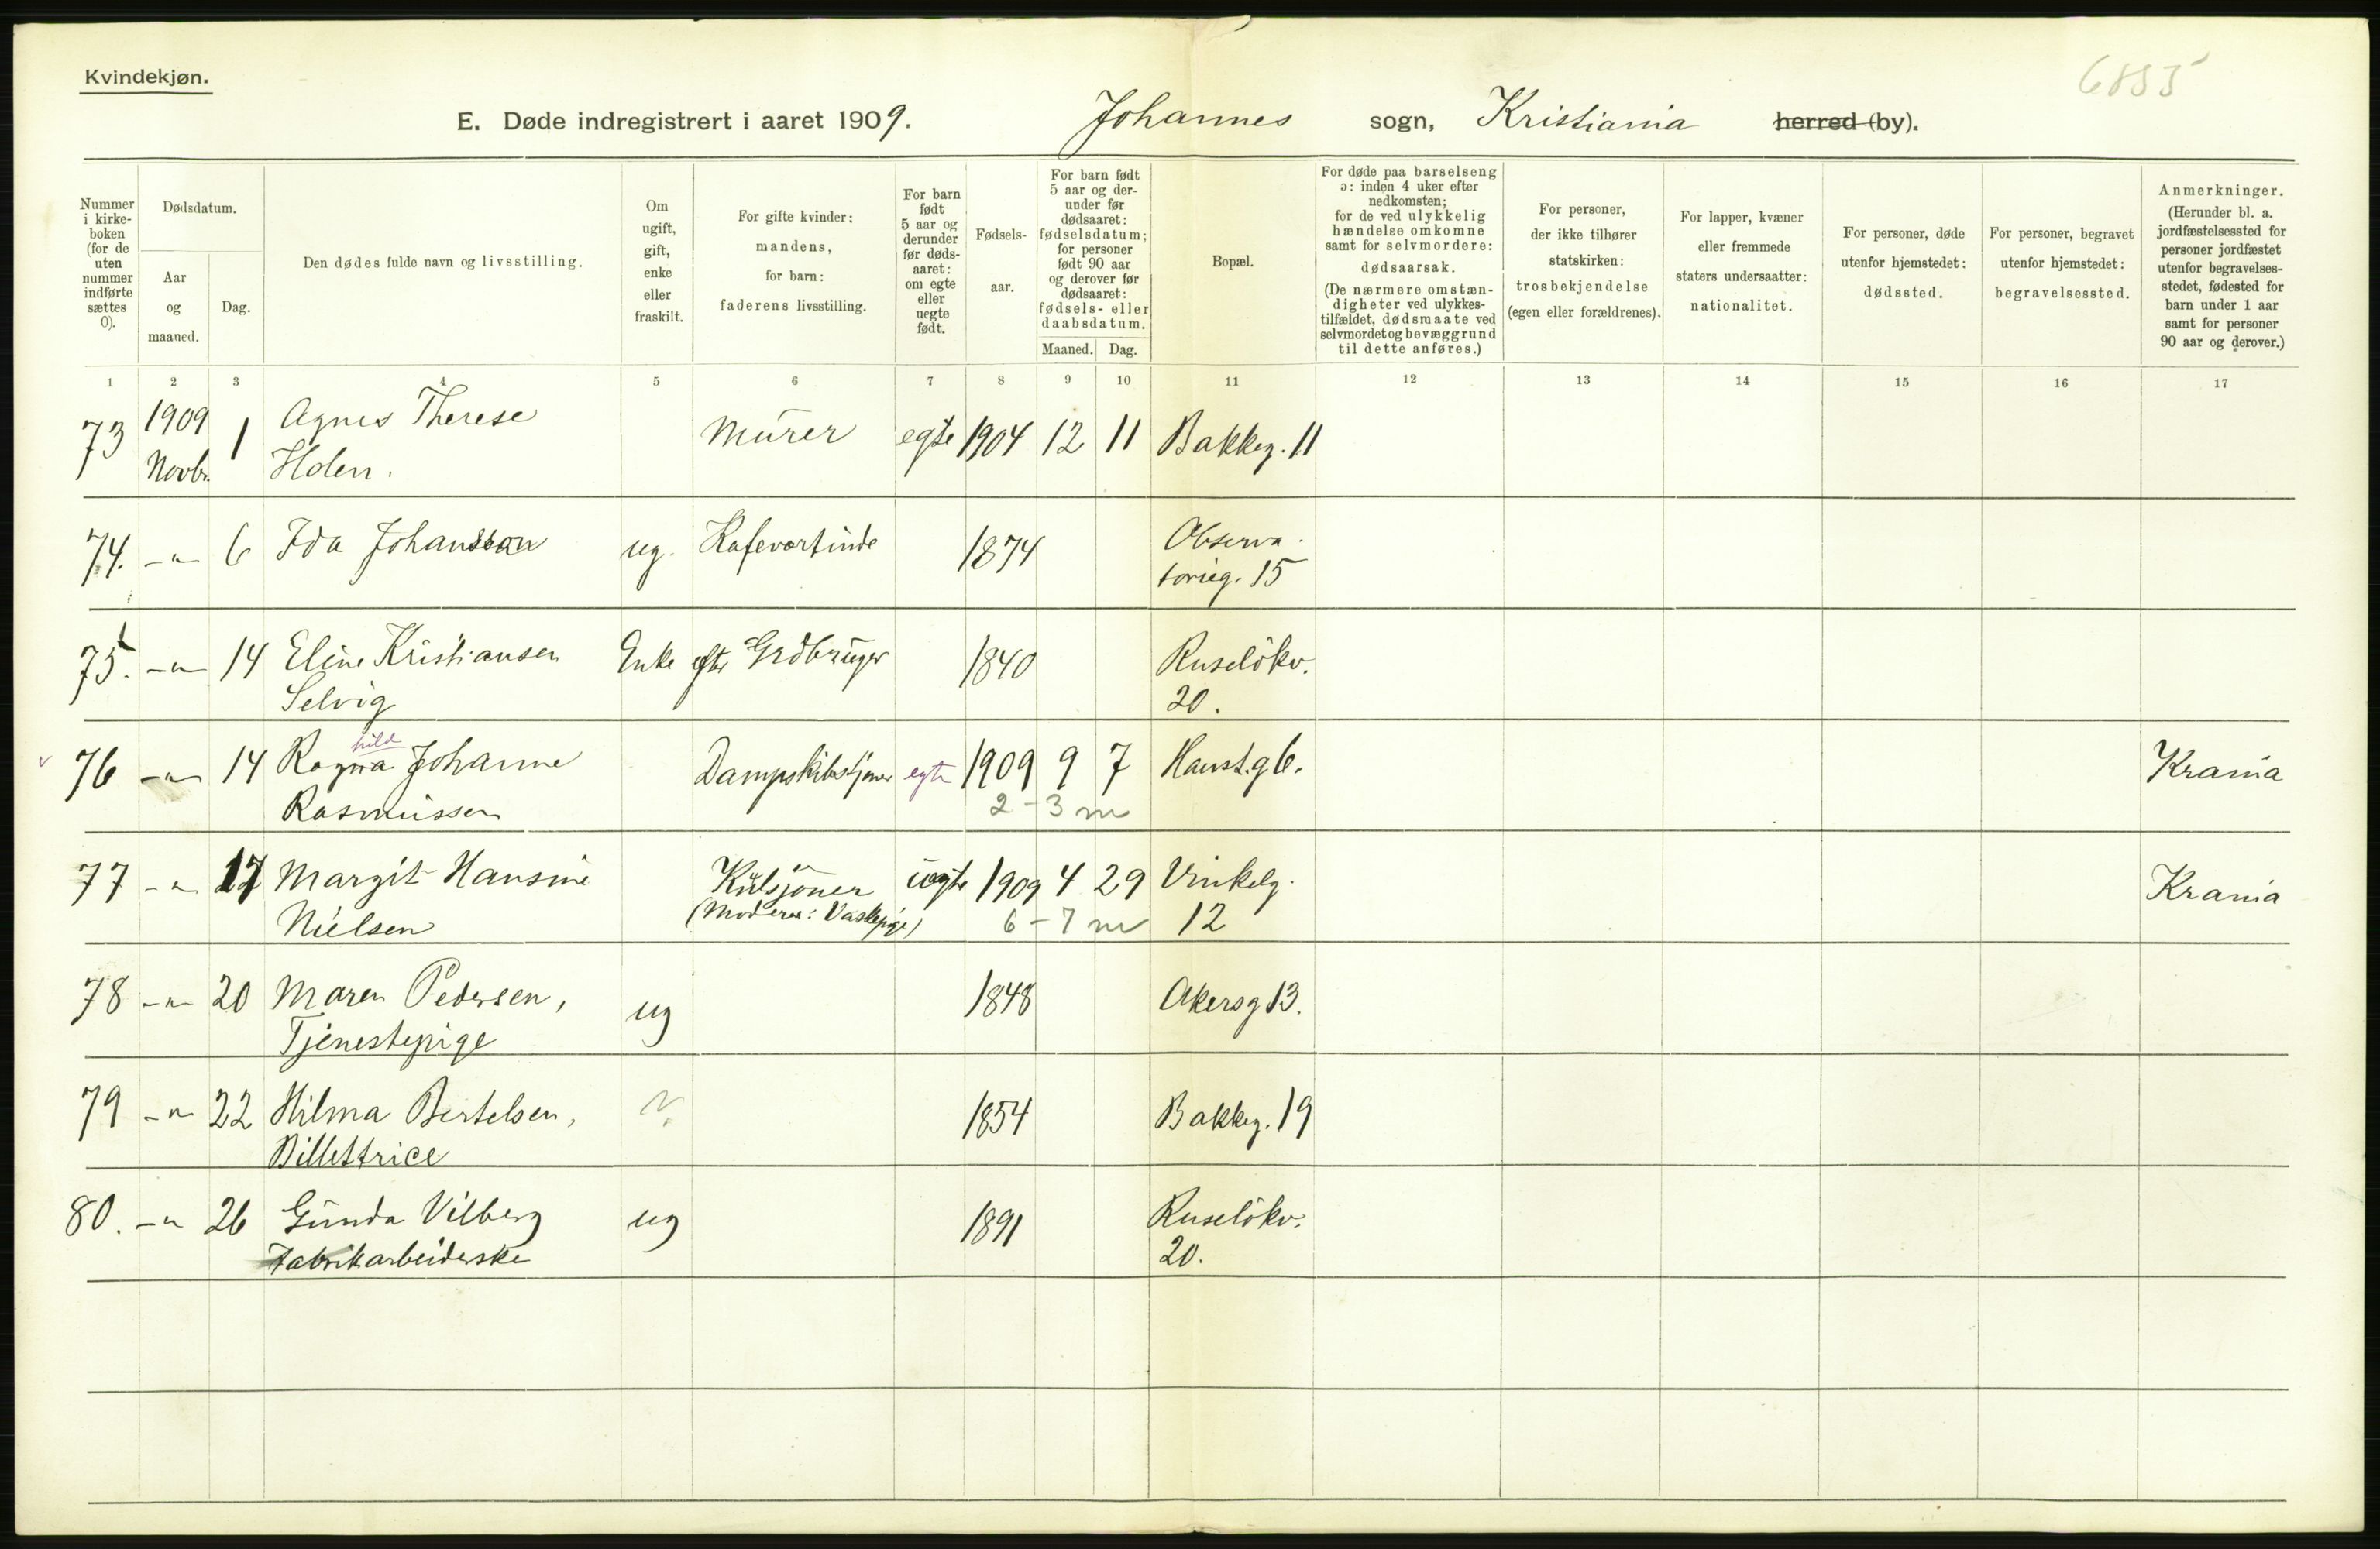 Kvindekjøn.
6855
E. Døde indregistrert i aaret 1909. Johannes sogn, Kristiania herred (by).
Nummer i kirke-boken (for de uten nummer indførte sættes 0).
Dødsdatum.
Aar og maaned.
Dag.
Den dødes fulde navn og livsstilling.
Om ugift, gift, enke eller fraskilt.
For gifte kvinder: mandens, for barn: faderens livsstilling.
For barn født 5 aar og derunder før døds-aaret: om egte eller uegte født.
Fødsels-aar.
For barn født 5 aar og der-under før dødsaaret: fødselsdatum; for personer født 90 aar og derover før dødsaaret: fødsels- eller daabsdatum.
Maaned. Dag.
Bopæl.
For døde paa barselseng ɔ: inden 4 uker efter nedkomsten; for de ved ulykkelig hændelse omkomne samt for selvmordere: dødsaarsak. (De nærmere omstæn-digheter ved ulykkes-tilfældet, dødsmaate ved selvmordet og bevæggrund til dette anføres.)
For personer, der ikke tilhører statskirken: trosbekjendelse (egen eller forældrenes).
For lapper, kvæner eller fremmede staters undersaatter: nationalitet.
For personer, døde utenfor hjemstedet: dødssted.
For personer, begravet utenfor hjemstedet: begravelsessted.
Anmerkninger. (Herunder bl. a. jordfæstelsessted for personer jordfæstet utenfor begravelses-stedet, fødested for barn under 1 aar samt for personer 90 aar og derover.)
1 2 3 4 5 6 7 8 9 10 11 12 13 14 15 16 17
73 1909 Novbr. 1 Agnes Therese Murer egte 1904 12 11 Bakkeg. 11
Holen.
74. -"- 6 Ida Johansson ug. Kafevertinde 1874 Observa-
torieg. 15
75. -"- 14 Eline Kristiansen Enke efter Grdbruger 1840 Ruseløkv.
Selvig 20.
hild
76 -"- 14 Ragna Johanne Dampskibstjener egte 1909 9 7 Haust.g 6. Krania
Rasmussen 2-3 m
77 -"- 17 Margit Hansine Kulsjöner uegte 1909 4 29 Vinkelg. Krania
Nielsen (Moderen: Vaskepige) 6-7 m 12
78 -"- 20 Maren Pedersen, ug 1848 Akersg 13.
Tjenestepige
79 -"- 22 Hilma Bertelsen, ? 1854 Bakkeg. 19
Billettrice
80. -"- 26 Gunda Vilberg ug 1891 Ruseløkv.
Fabrikarbeiderske 20.